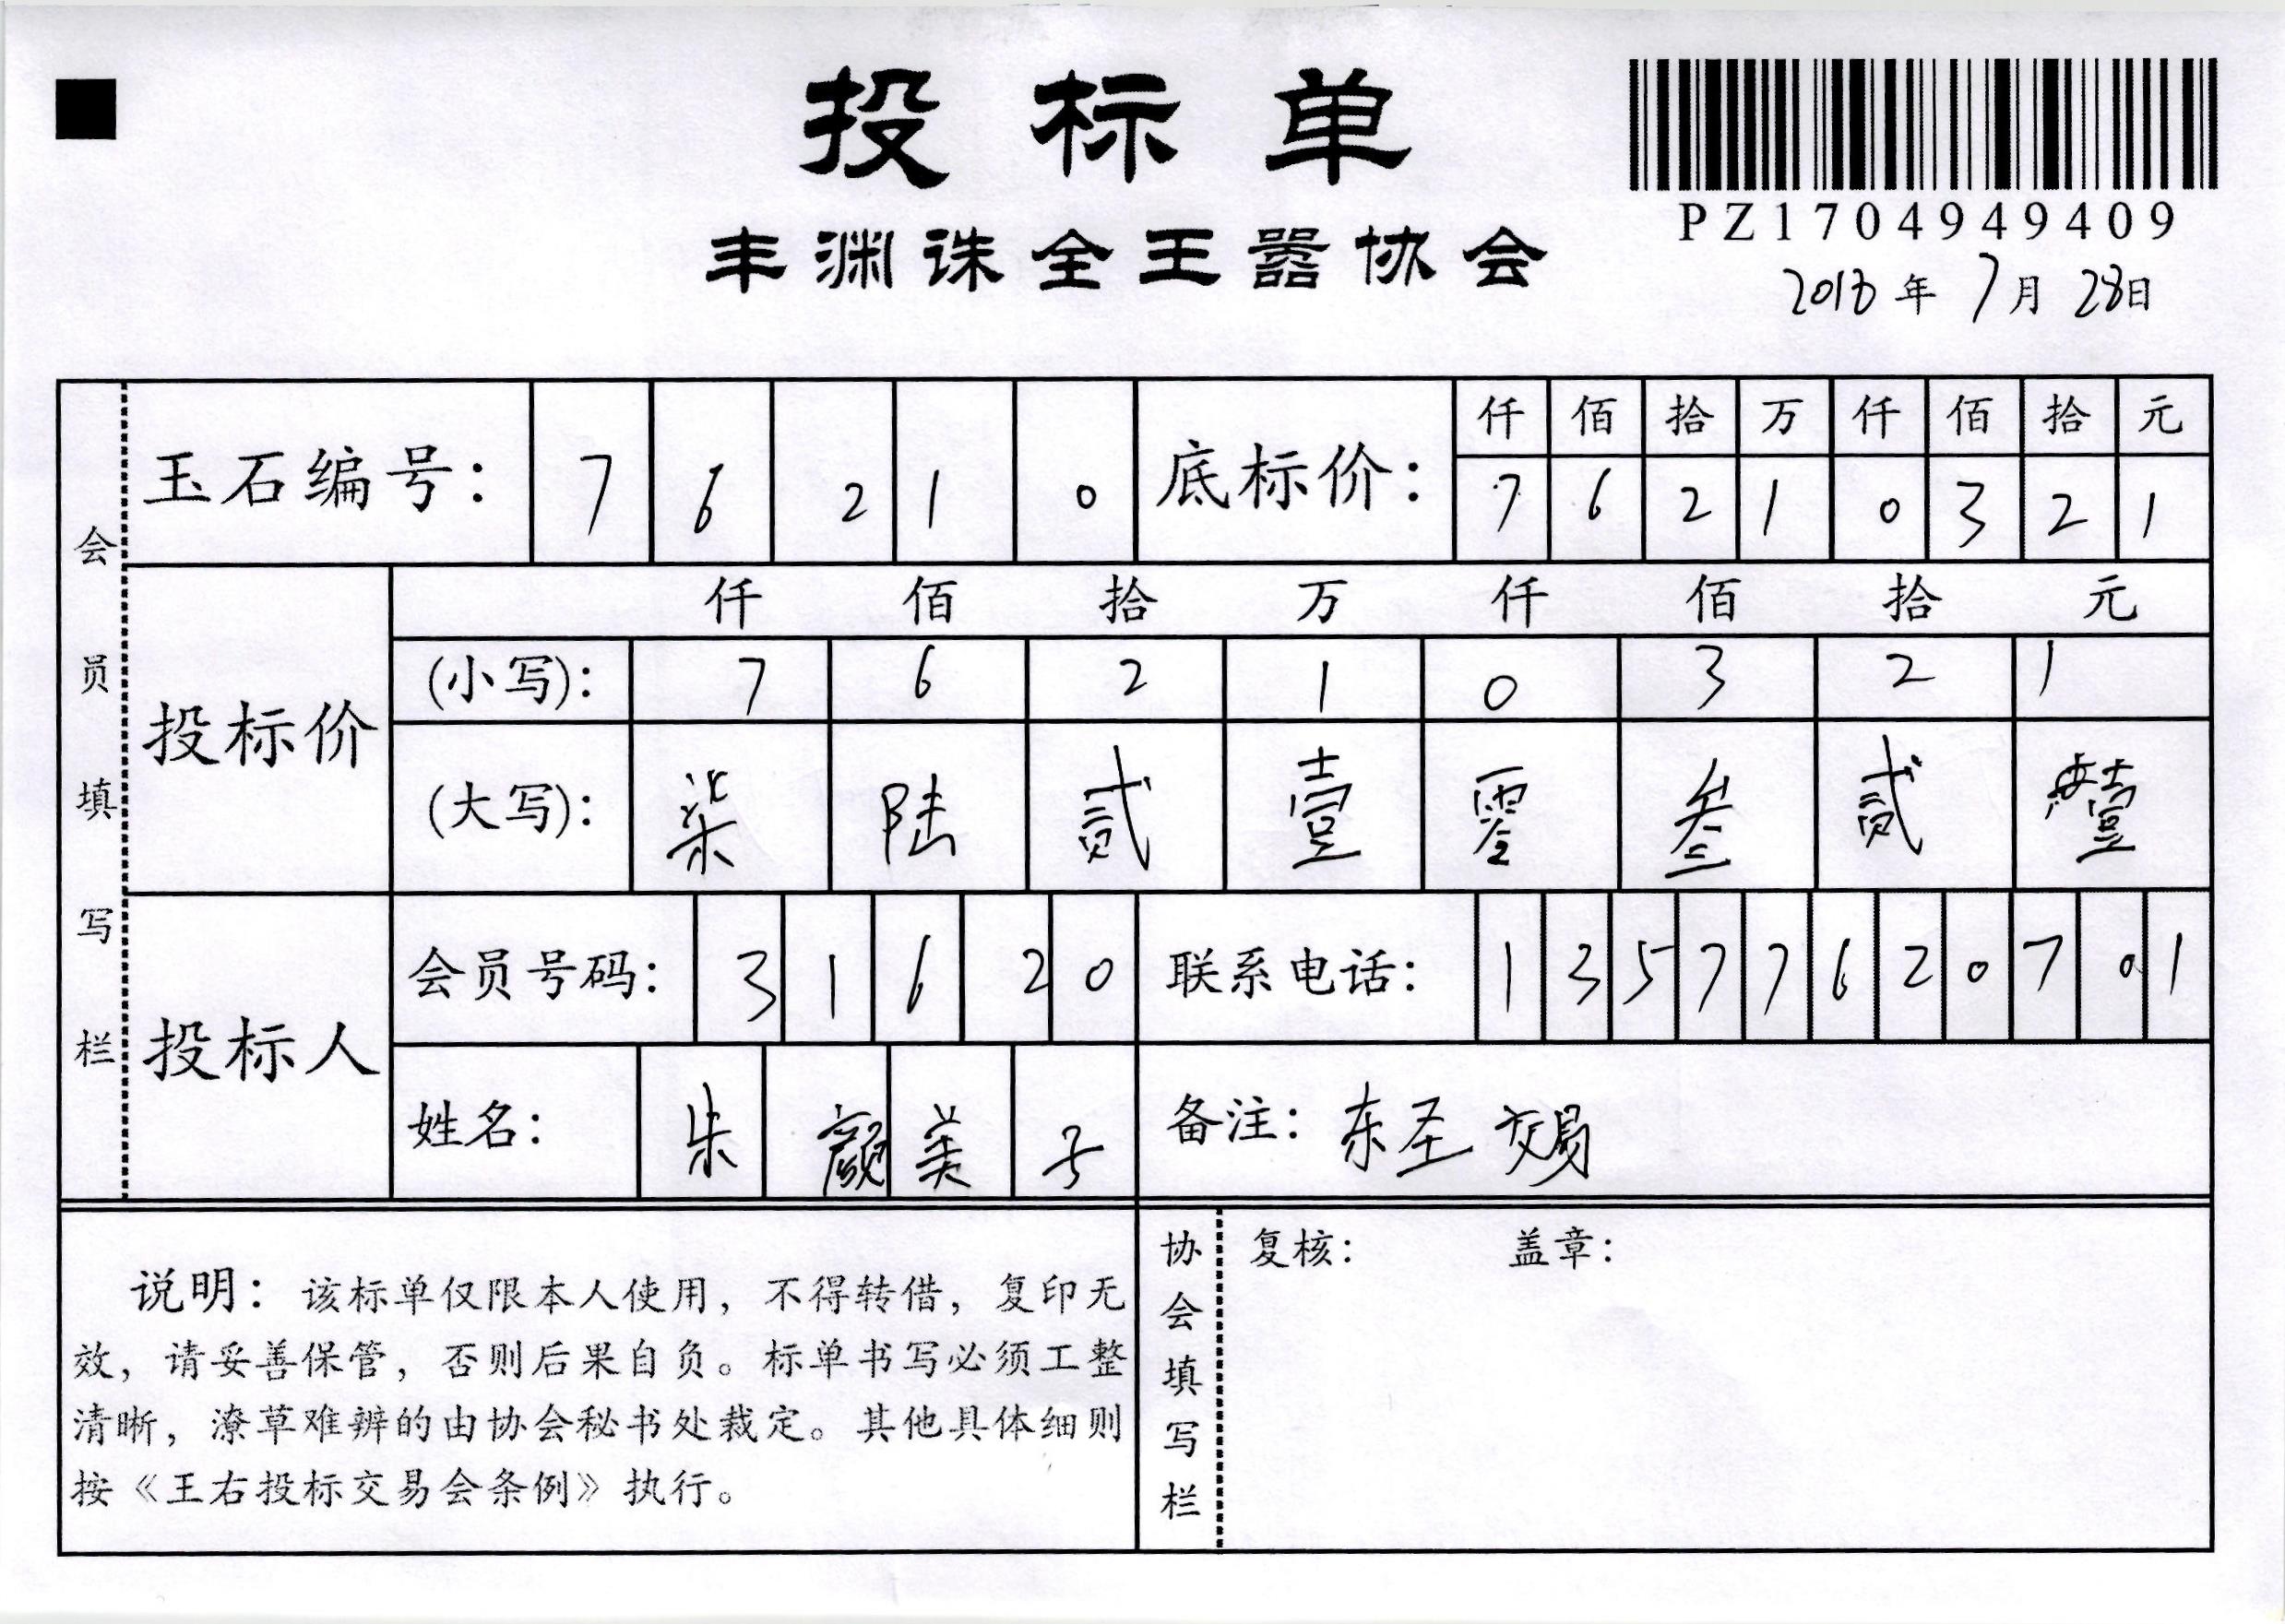 投标单
丰渊诛全王嚣协会
PZ1704949409
2018年7月28日
会员填写栏
玉石编号: 7 6 2 1 0
底标价: 仟 佰 拾 万 仟 佰 拾 元
7 6 2 1 0 3 2 1
投标价
仟 佰 拾 万 仟 佰 拾 元
(小写): 7 6 2 1 0 3 2 1
(大写): 柒 陆 贰 壹 零 叁 贰 壹
投标人
会员号码: 3 1 6 2 0
联系电话: 1 3 5 7 7 6 2 0 7 0 1
姓名: 朱 颜 美 子
备注: 东圣交易
说明: 该标单仅限本人使用，不得转借，复印无
效，请妥善保管，否则后果自负。标单书写必须工整
清晰，潦草难辨的由协会秘书处裁定。其他具体细则
按《王右投标交易会条例》执行。
协会填写栏
复核: 盖章: